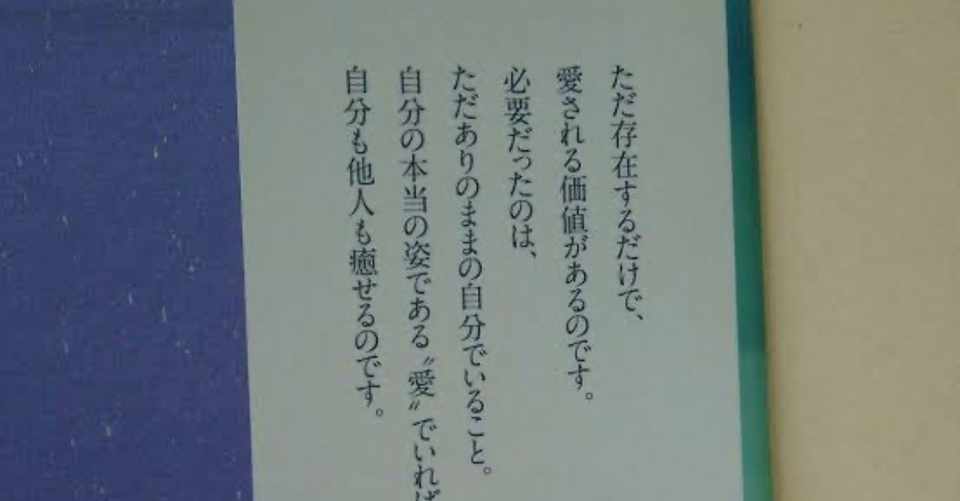 ただ存在するだけで、
愛される価値があるのです。
必要だったのは、
ただありのままの自分でいること。
自分の本当の姿である〝愛〟でいれば
自分も他人も癒せるのです。